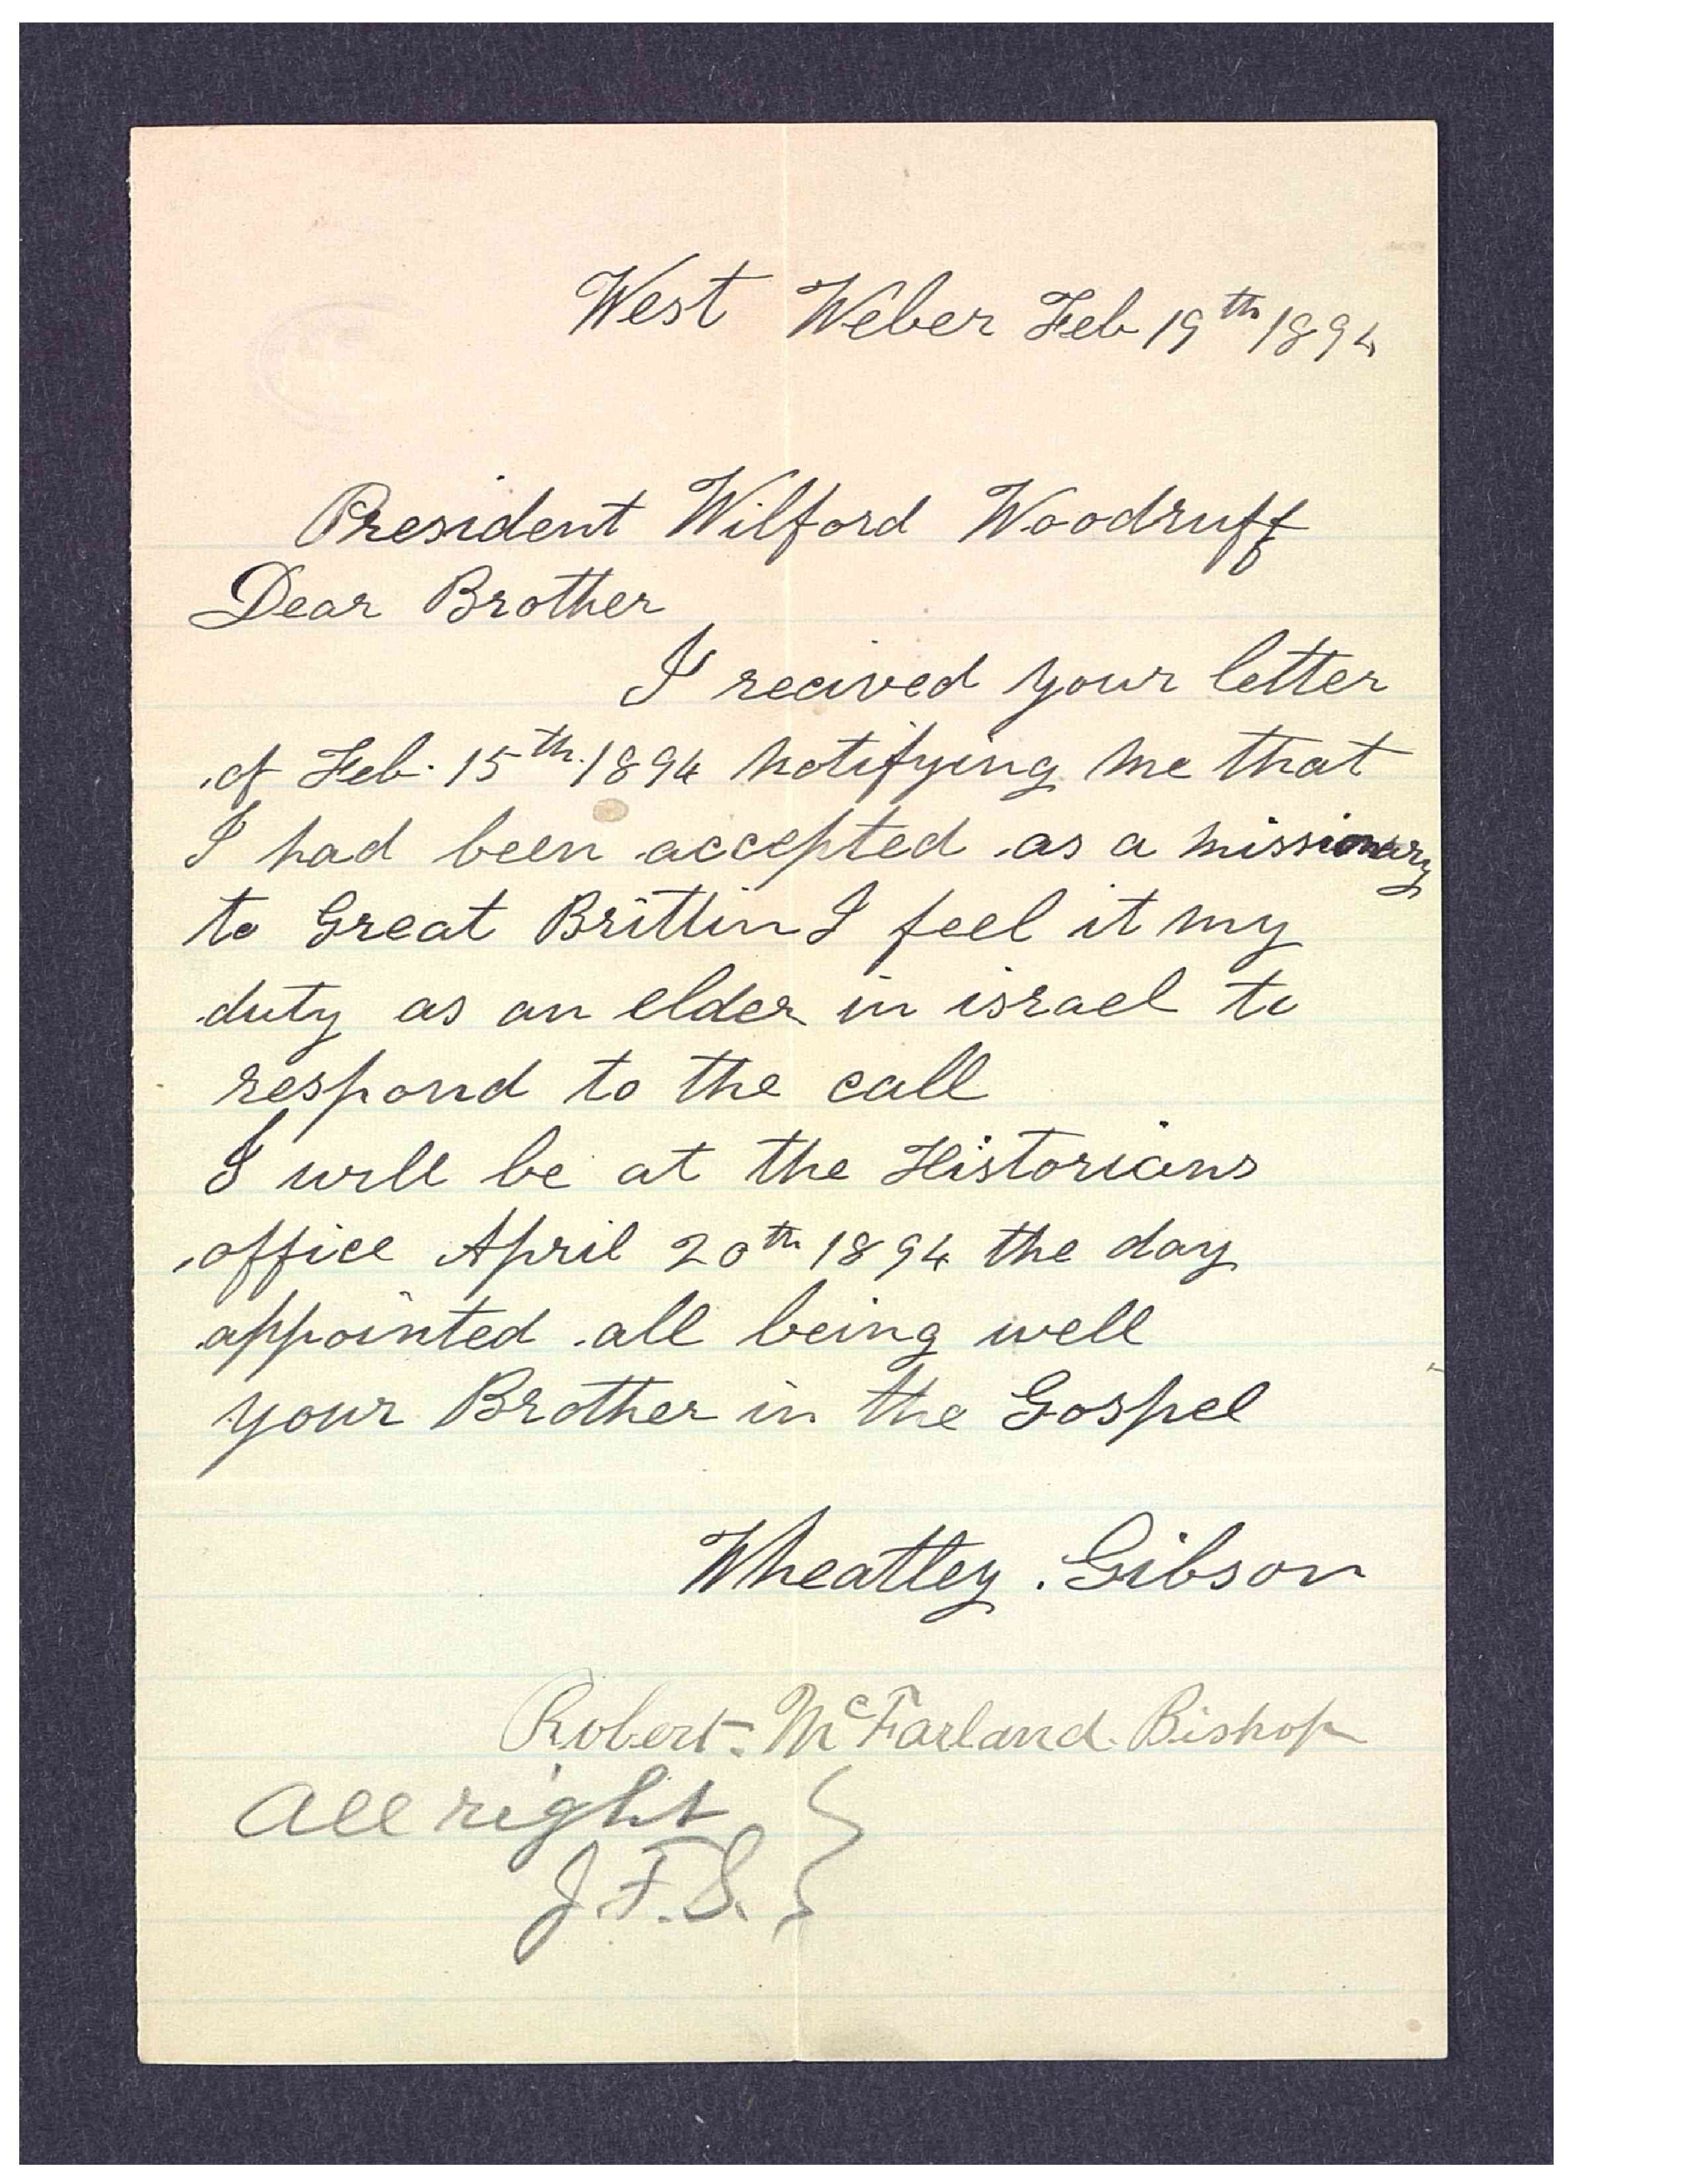 West Weber Feb 19th 1894
President Wilford Woodruff
Dear Brother
I recived your letter
of Feb. 15th. 1894 notifying me that
I had been accepted as a missionary
to Great Brittin I feel it my
duty as an elder in israel to
respond to the call
I will be at the Historians
office April 20th 1894 the day
appointed all being well
your Brother in the Gospel
Wheatley. Gibson
Robert. McFarland. Bishop
All right
J. F. S.